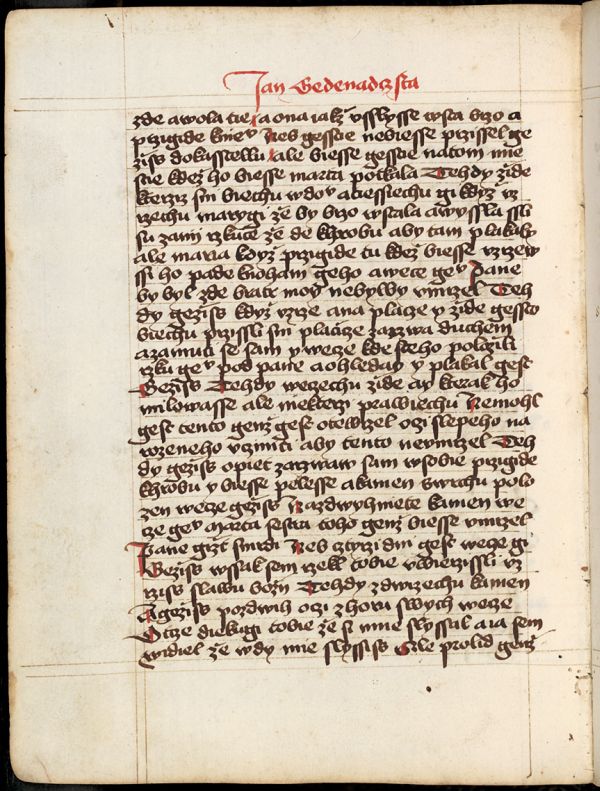 Jan Gedenadczsta
zde a wola tie a ona iakz vslysse wsta brzo a
przigide kniev Neb gesscie nebiesse przissel ge
ziss do kasstellu ale biesse gesscie na tom mie
stie kdez ho biesse marta potkala Tehdy zide
kterziz sin biechu w dov a tiessiechu gi kdyz vz
rziechu marygi ze by brzo wstala a wyssla ssli
su za ni rzkuce ze de k hrobu aby tam plakala
ale maria kdyz przigide tu kdez biesse vzrzew
ssi ho pade k noham geho a wece gev Pane
by byl zde bratr moy neby byl vmrzel Teh
dy geziss kdyz vzrze ana place y zide gessto
biechu przissli s ni placicze zarzwa duchem
a zamuti se sam y wece kde ste ho polozili
rzku gev pod pane a ohleday y plakal gest
Geziss Tehdy wecechu zide ay kterak ho
milowasse ale niekterzi prawiechu Nemohl
gest tento genz gest otewrzel oczi slepeho na
rozeneho vcziniti aby tento nevmrzel Teh
dy geziss opiet zarzwaw sam w sobie przigide
k hrobu y biesse pelesse a kamen swrchu polo
zen wece geziss Nazdwyhniete kamen we
ce gev marta sestra toho genz biesse vmrzel
Pane gizt smrdi Neb cztyrzi dni gest wece gi
Geziss wssak sem rzekl tobie vwierzissli vz
rziss slawu bozij Tehdy zdwizechu kamen
A geziss pozdwih oczi zhoru swych wece
Otcze diekugi tobie ze si mie slyssal a ia sem
widiel ze wzdy mie slyssiss Ale pro lid genz